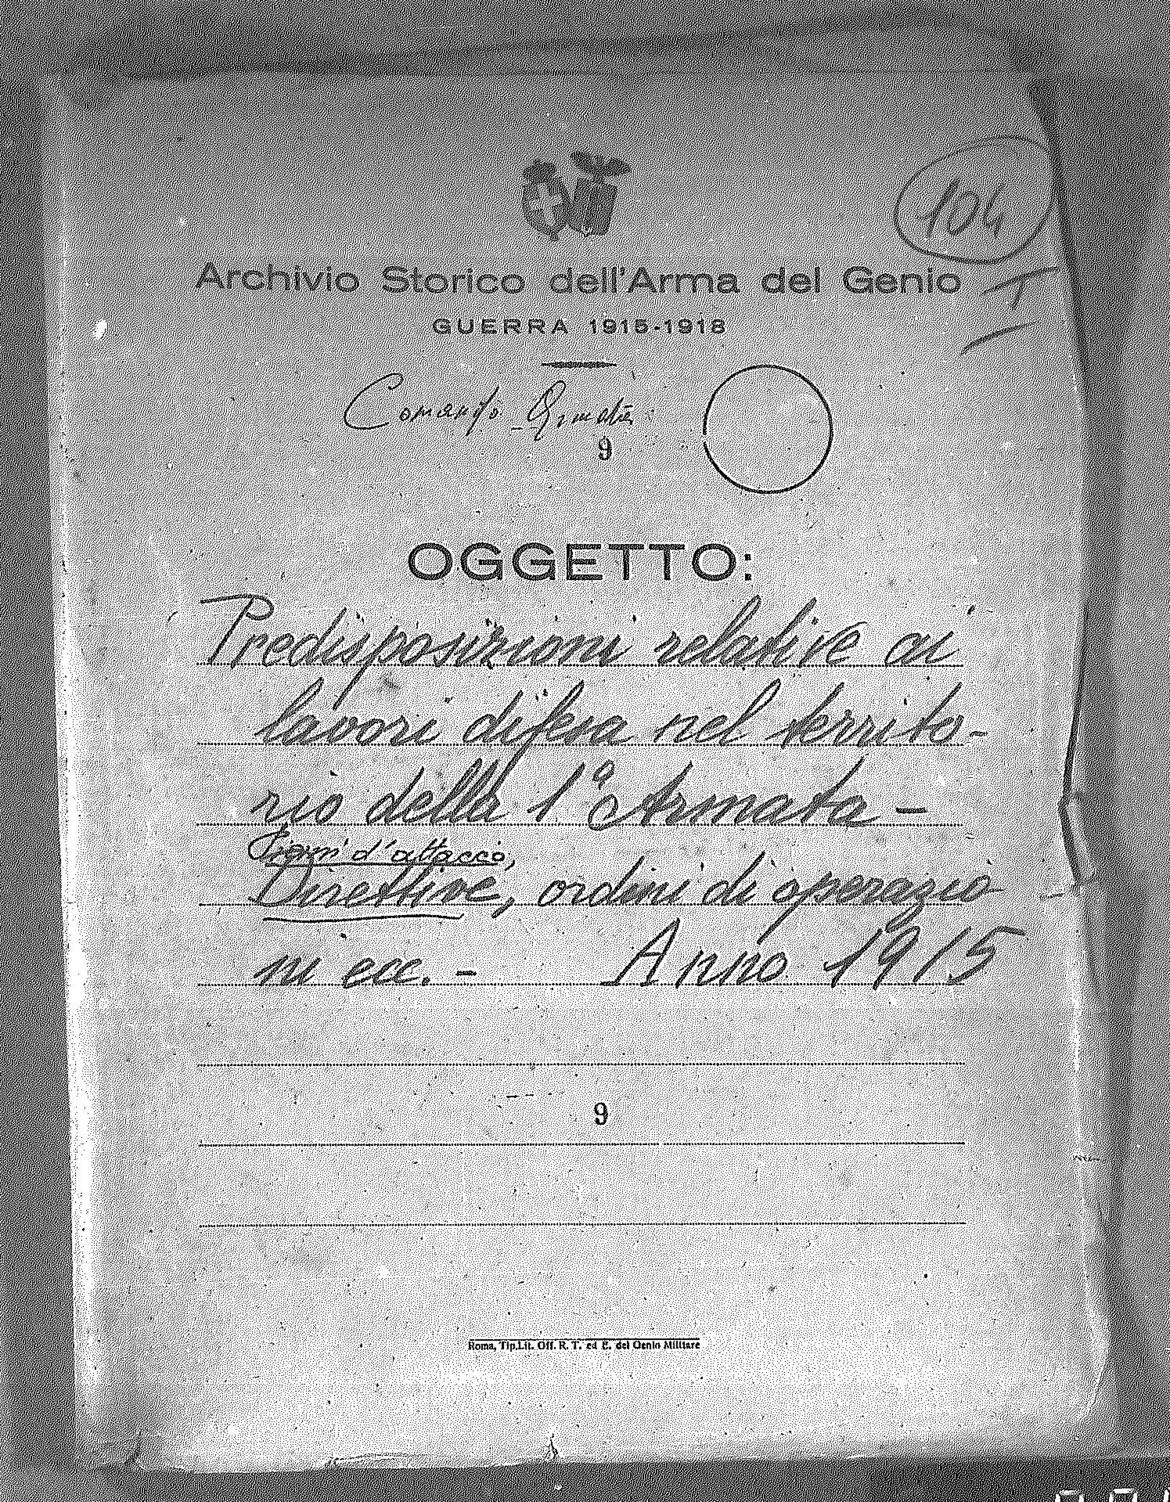 104
Archivio Storico dell'Arma del Genio
I
GUERRA 1915-1918
Comando Armata
9
OGGETTO:
Predisposizioni relative ai
lavori difesa nel territo-
rio della 1ª Armata -
Piani d'attacco,
Direttive, ordini di operazio
ni ecc. - Anno 1915
9
Roma, Tip.Lit. Off. R. T. ed E. del Genio Militare